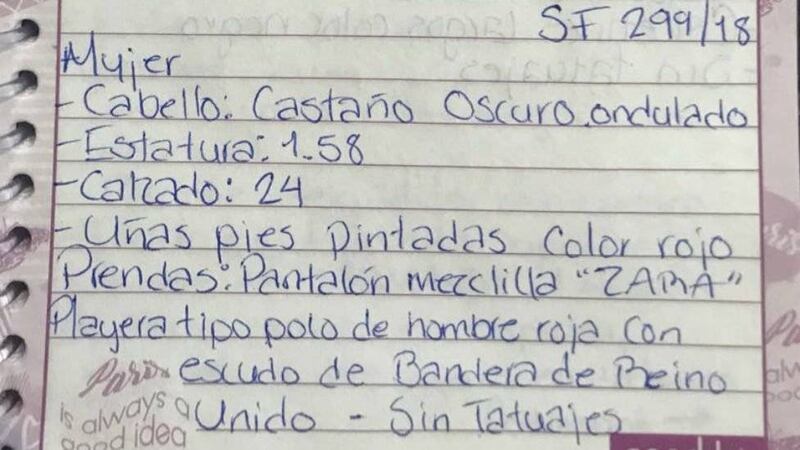 SF 299/18
Mujer
- Cabello: Castaño Oscuro.ondulado
- Estatura: 1.58
- Calzado: 24
- Uñas pies Pintadas Color rojo
Prendas: Pantalón mezclilla "ZARA"
Playera tipo polo de hombre roja con
escudo de Bandera de Reino
Unido - Sin Tatuajes
Paris
is always a
good idea